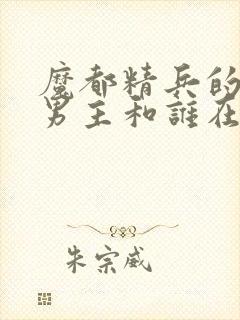 魔都精兵的
男主和誰在
朱宗威